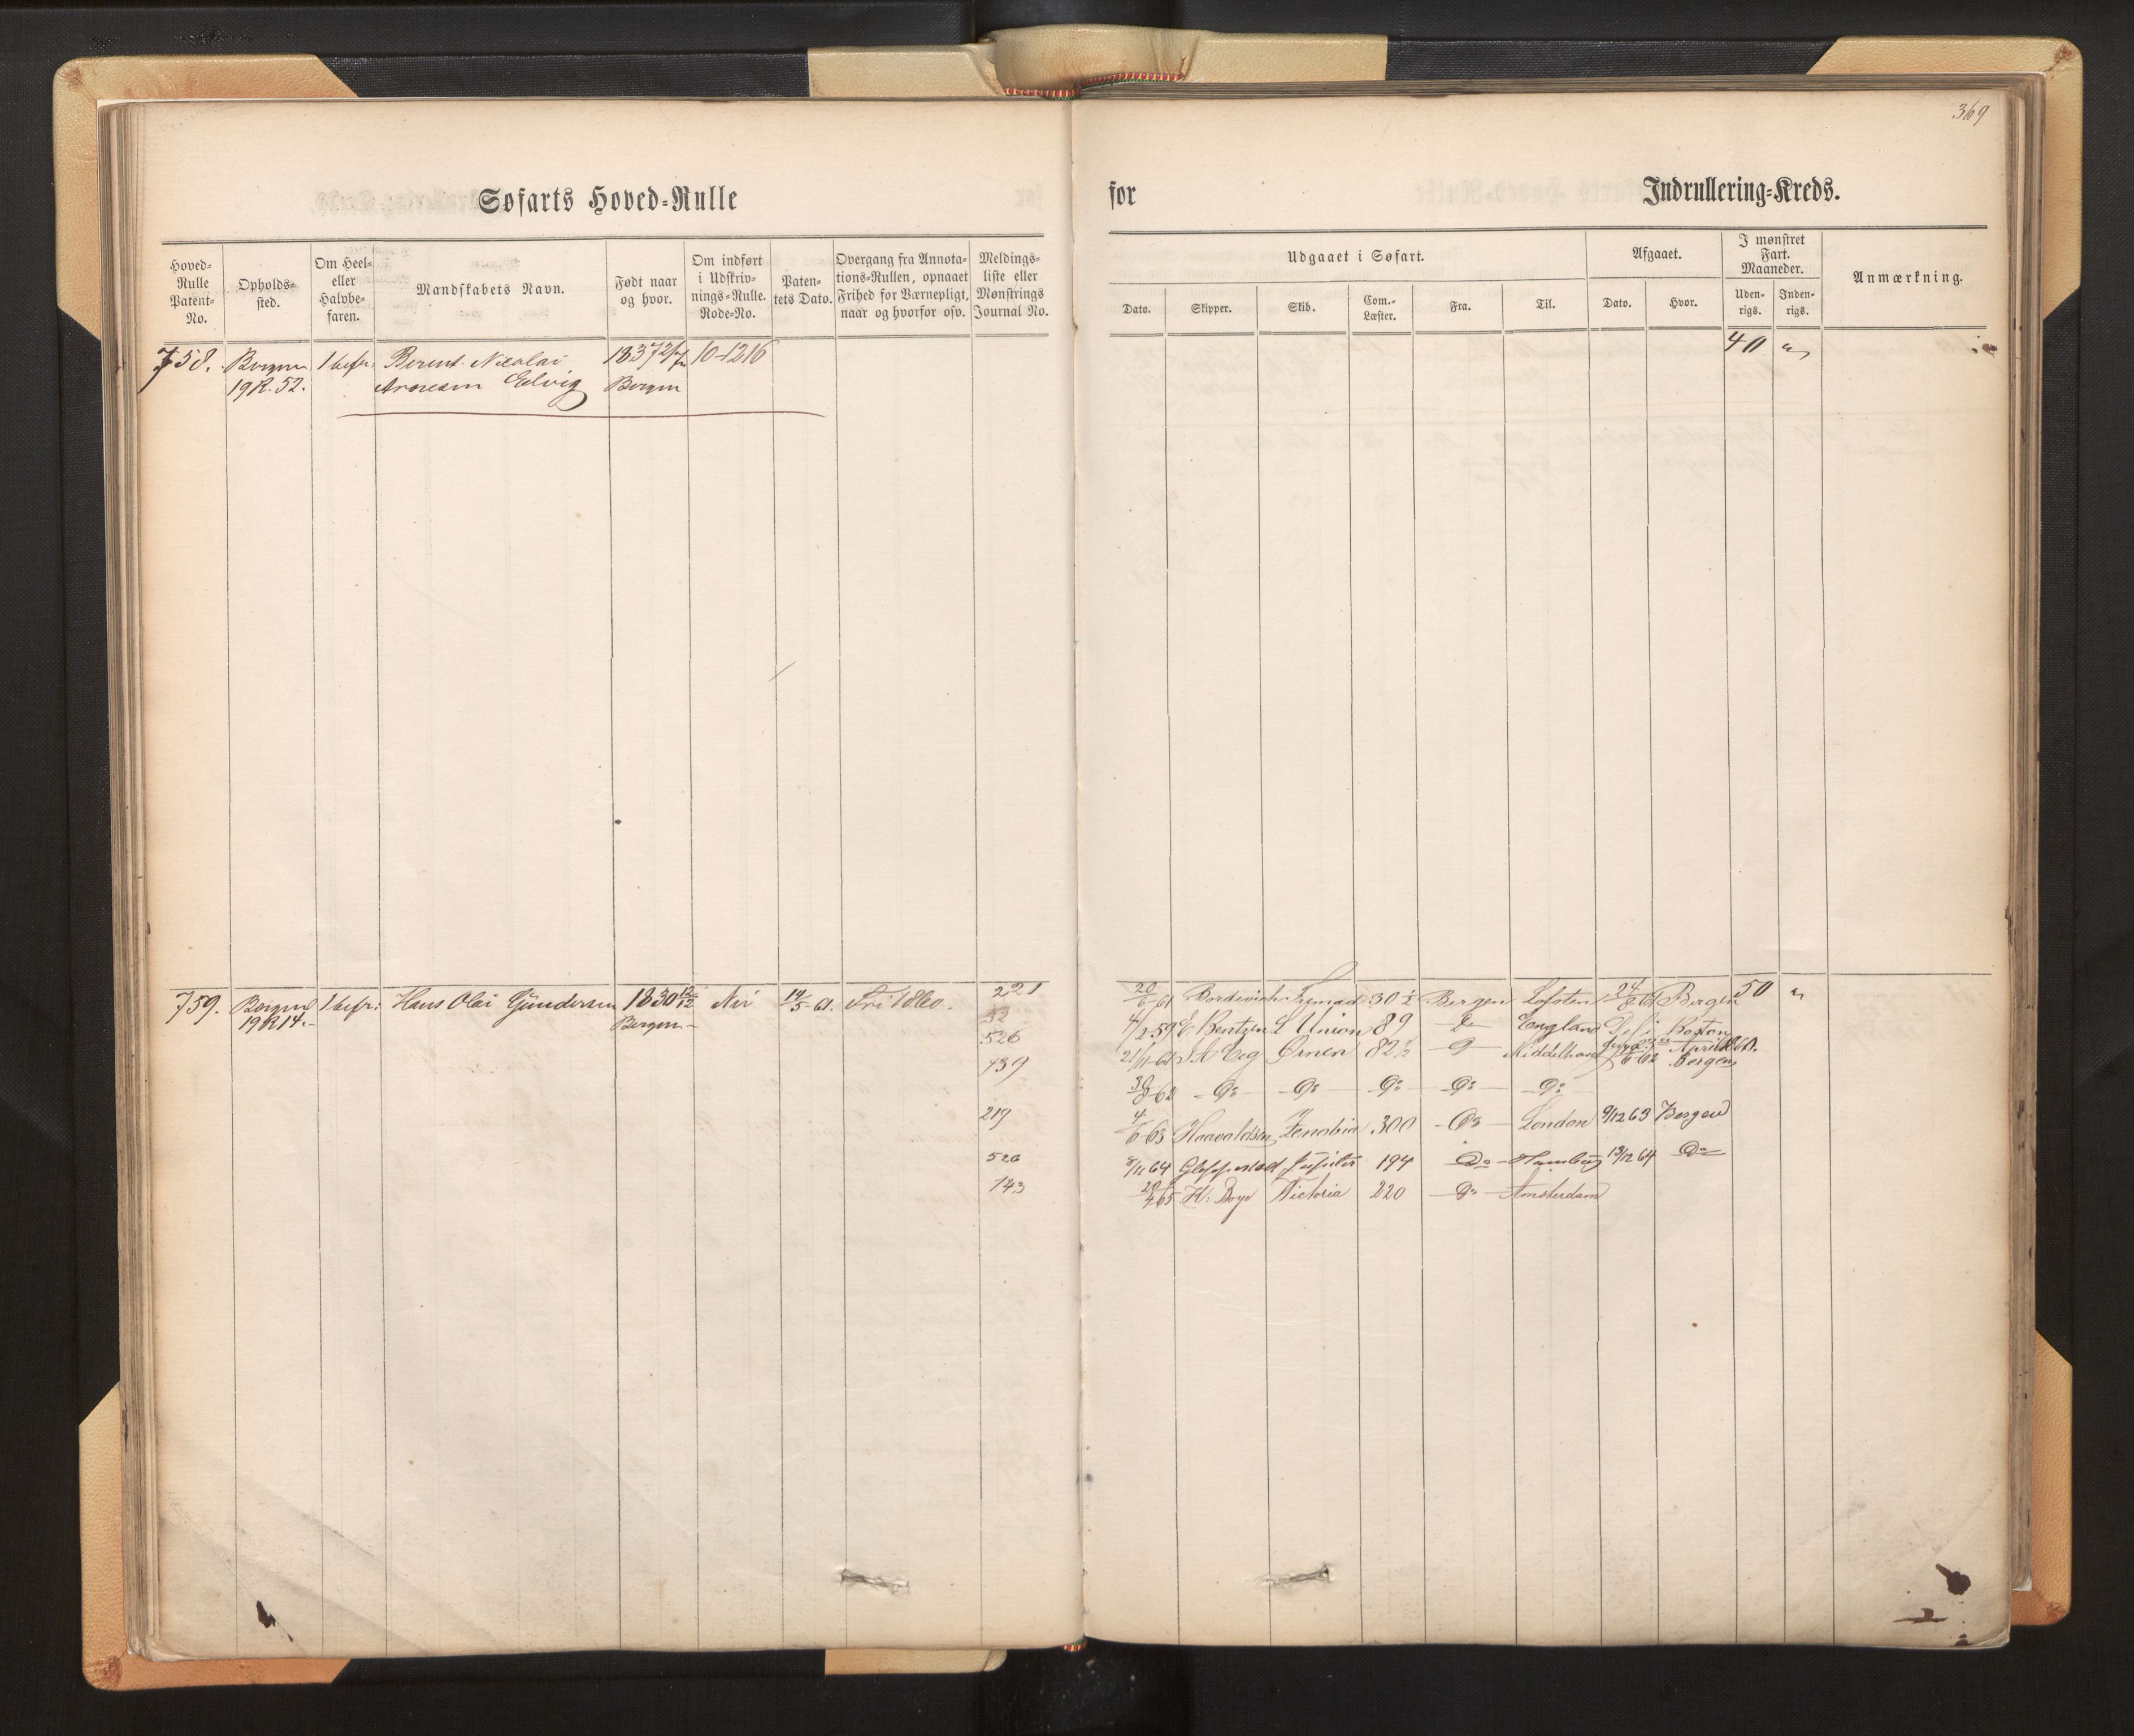 369
Søfarts Hoved-Rulle
for Indrullering-Kreds.
Hoved-Rulle Patent-No.
Opholds-sted.
Om Heel- eller Halvbe-faren.
Mandskabets Navn.
Født naar og hvor.
Om indført i Udskriv-nings-Rulle. Rode-No.
Paten-tets Dato.
Overgang fra Annota-tions-Rullen, opnaaet Frihed for Værnepligt, naar og hvorfor osv.
Meldings-liste eller Mønstrings Journal No.
Udgaaet i Søfart.
Dato.
Skipper.
Skib.
Com.-Læster.
Fra.
Til.
Afgaaet.
Dato.
Hvor.
I mønstret Fart. Maaneder.
Uden-rigs.
Inden-rigs.
Anmærkning.
758. Bergen 1 befr: Berent Nicolai 1837 2/7 10-1216 40 "
19 R. 52. Arnesen Bergen
759. Bergen 1 befr: Hans Olai Gundersen 1830 12/12 Nei 14/5 61. Fri 221 20/6 61 30 1/2 Bergen Lofoten 24/8 61 Bergen 50 "
19 R 14. Bergen 32 4/2 59 E Bentzen Union 89 Do England Boston
526 21/11 61 Ørnen 82 1/2 Do Middelhavet 6-62 Bergen
439 30/8 62 Do Do Do Do Do
219 4/6 63 Haavaldsen Zenobia 300 Do London 9/12 63 Bergen
526 8/11 64 Jupiter 194 Do Hamburg 13/12 64 Do
143 20/4 65 H: Boye Victoria 220 Do Amsterdam